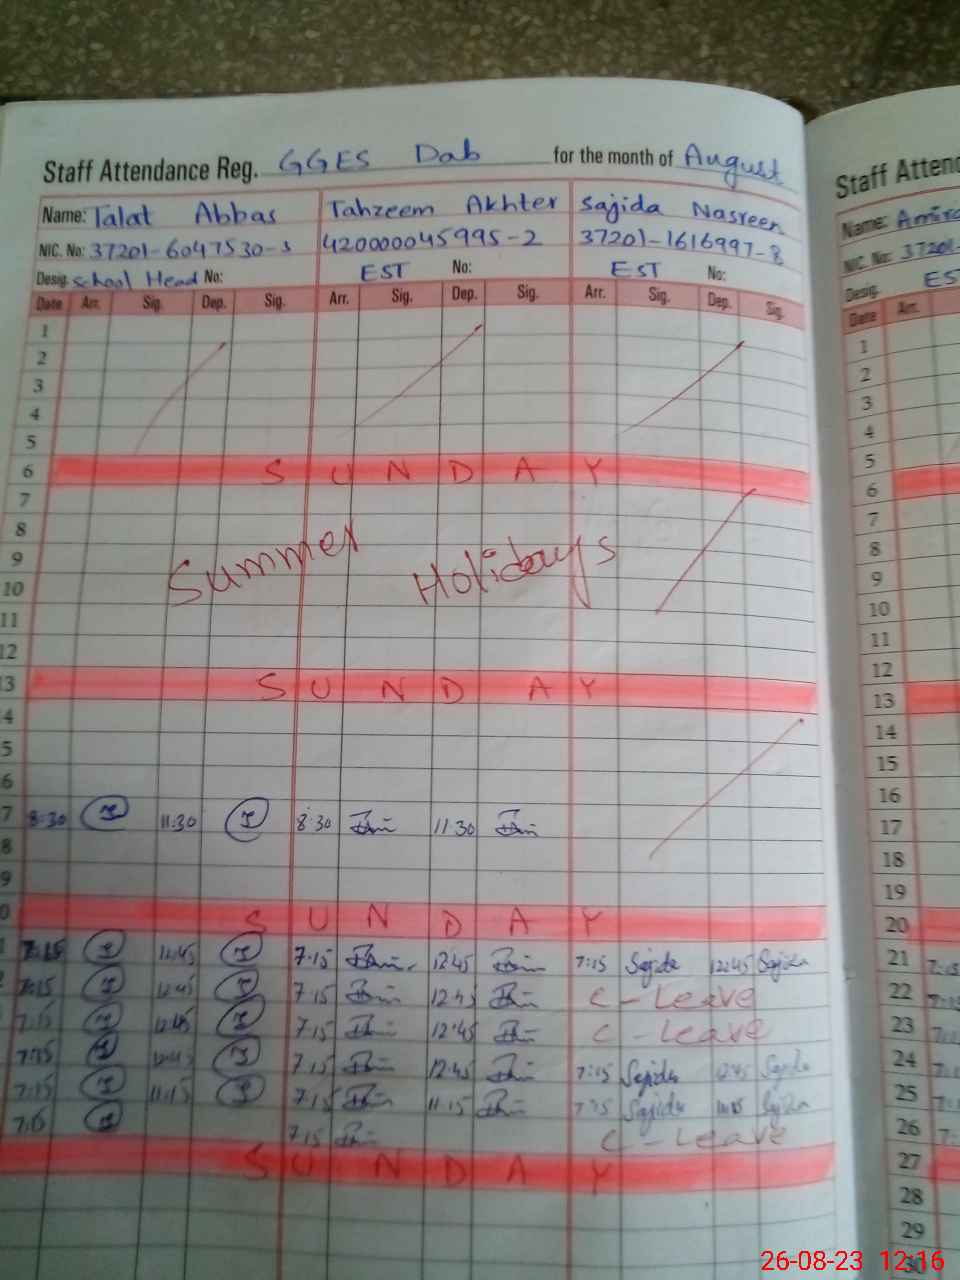 Staff Attendance Reg. GGES Dab for the month of August
Name: Talat Abbas Tahzeem Akhter Sajida Nasreen
NIC. No: 37201-6047530-3 420000045995-2 37201-1616997-8
Desig. School Head No: EST No: EST No:
Date Arr. Sig. Dep. Sig. Arr. Sig. Dep. Sig. Arr. Sig. Dep. Sig.
1
2
3
4
5
6 SUNDAY
7
8
9 Summer Holidays
10
11
12
3 SUNDAY
4
5
6
7 8:30 11:30 8:30 11:30
8
9
0 SUNDAY
7:15 12:45 7:15 12:45 7:15 Sajida 12:45 Sajida
7:15 12:45 7:15 12:45 C-Leave
7:15 12:45 7:15 12:45 C-Leave
7:15 12:45 7:15 12:45 7:15 Sajida 12:45 Sajida
7:15 11:15 7:15 11:15 7:15 Sajida 11:15 Sajida
7:15 7:15 C-Leave
SUNDAY
Staff Atten
Name: Amira
NIC. No: 37201-
Desig. EST
Date Arr.
1
2
3
4
5
6
7
8
9
10
11
12
13
14
15
16
17
18
19
20
21 7:15
22 7:15
23 7:15
24
25
26
27
28
29
30
26-08-23 12:16